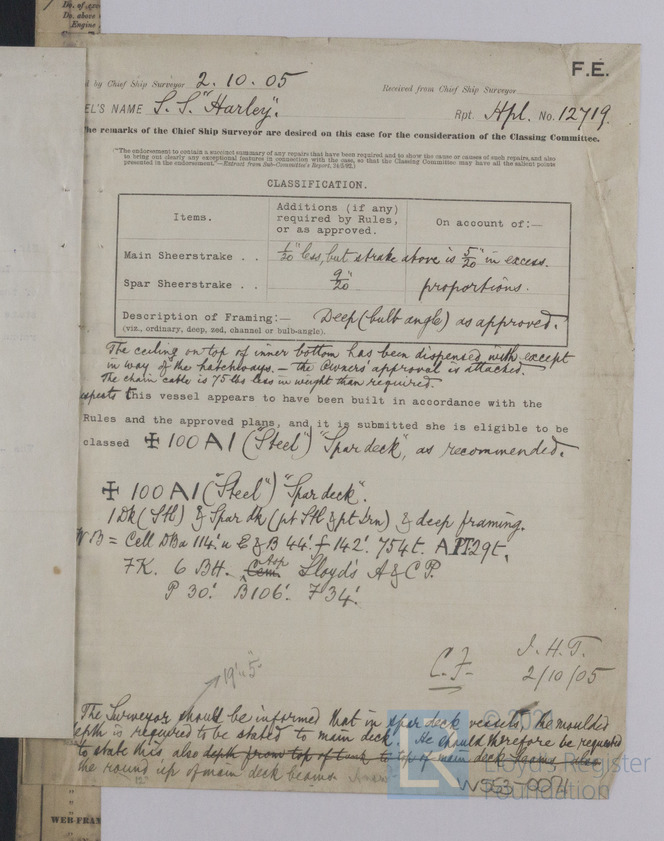 Do. of
Do. above
Engine
F.E.
d by Chief Ship Surveyor 2.10.05 Received from Chief Ship Surveyor
EL'S NAME S.S. "Harley". Rpt. Hpl. No. 12719.
The remarks of the Chief Ship Surveyor are desired on this case for the consideration of the Classing Committee.
("The endorsement to contain a succinct summary of any repairs that have been required and to show the cause or causes of such repairs, and also
to bring out clearly any exceptional features in connection with the case, so that the Classing Committee may have all the salient points
presented in the endorsement."—Extract from Sub-Committee's Report, 24/5/92.)
CLASSIFICATION.
Items. Additions (if any) required by Rules, or as approved. On account of:—
Main Sheerstrake . . 1/20" less, but strake above is 5/20" in excess.
Spar Sheerstrake . . 9/20" proportions.
Description of Framing:— Deep (bulb angle) as approved.
(viz., ordinary, deep, zed, channel or bulb-angle).
The ceiling on top of inner bottom has been dispensed with except
in way of the hatchways. — the Owners' approval is attached.
The chain cable is 75 lbs less in weight than required.
espects this vessel appears to have been built in accordance with the
Rules and the approved plans, and it is submitted she is eligible to be
classed ✠ 100 A1 ("Steel") "Spar deck", as recommended.
✠ 100 A1 ("Steel") "Spar deck".
1 Dk (Stl) & Spar dk (pt Stl & pt Irn) & deep framing.
WB = Cell DBa 114' u E & B 44' f 142' 754t. APT 29t.
FK. 6 BH. Cem Lloyd's A & C P.
P 30' B 106' F 34'
J.H.T.
C.F. 2/10/05
19'.5"
The Surveyor should be informed that in spar deck vessels, the moulded
depth is required to be stated to main deck. He should therefore be requested
to state this also depth from top of tank to top of main deck beams, also
the round up of main deck beams.
© 2021
Lloyd's Register
Foundation
W563-0071
WEB-FRAM